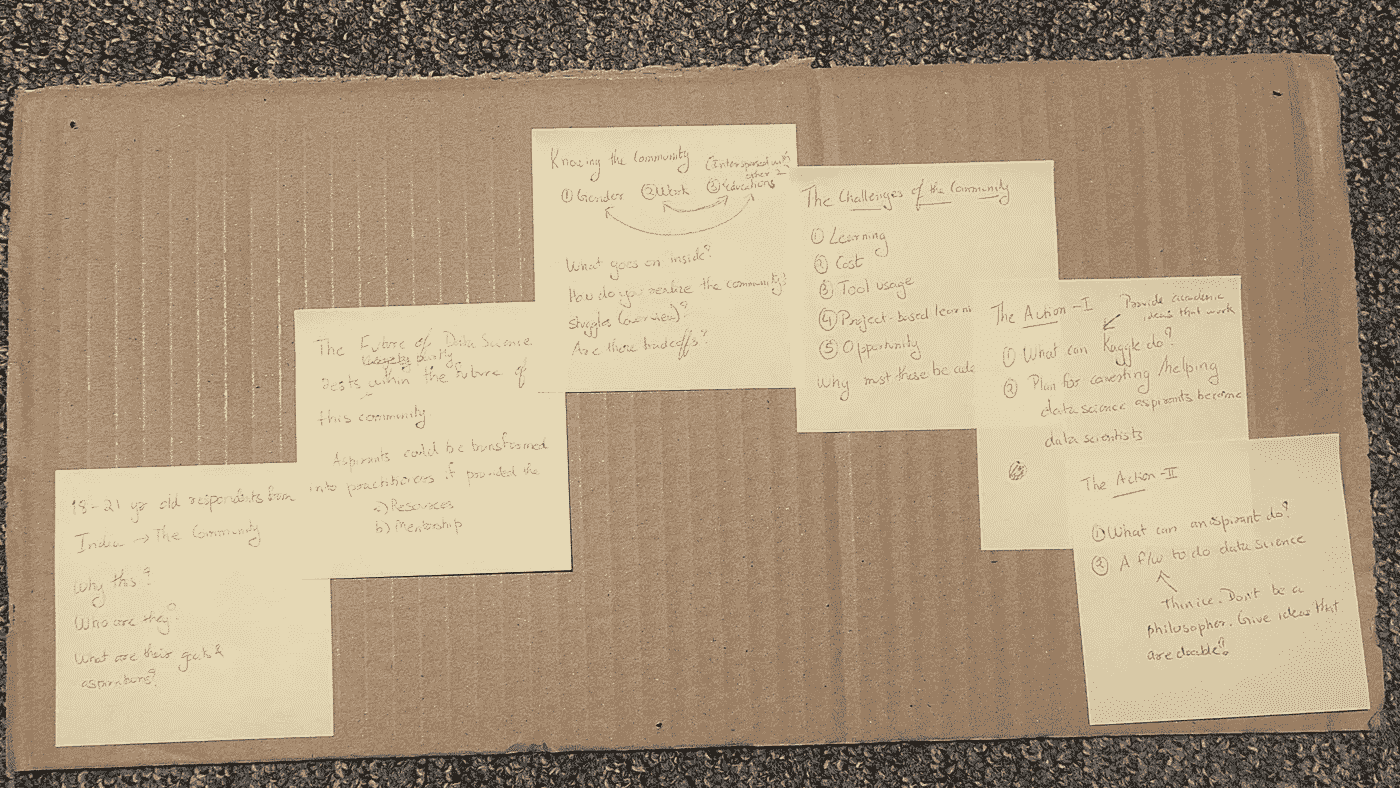 18-21 yr old respondents from
India → The Community
Why this?
Who are they?
What are their goals &
aspirations?
The Future of Data Science
largely partly
Rests within the future of
this community
Aspirants could be transformed
into practitioners if provided the
a) Resources
b) Mentorship
Knowing the Community
(Interspersed with
other 2
① Gender ② Work ③ Education
What goes on inside?
How do you realize the community?
Struggles (overview)?
Are there tradeoffs?
The Challenges of the Community
① Learning
② Cost
③ Tool usage
④ Project-based learni
⑤ Opportunity
Why must these be
The Action - I
Provide academic
ideas that work
① What can Kaggle do?
② Plan for converting / helping
data science aspirants become
data scientists
The Action - II
① What can an aspirant do?
② A f/w to do data science
Thin ice. Don't be a
philosopher. Give ideas that
are doable!